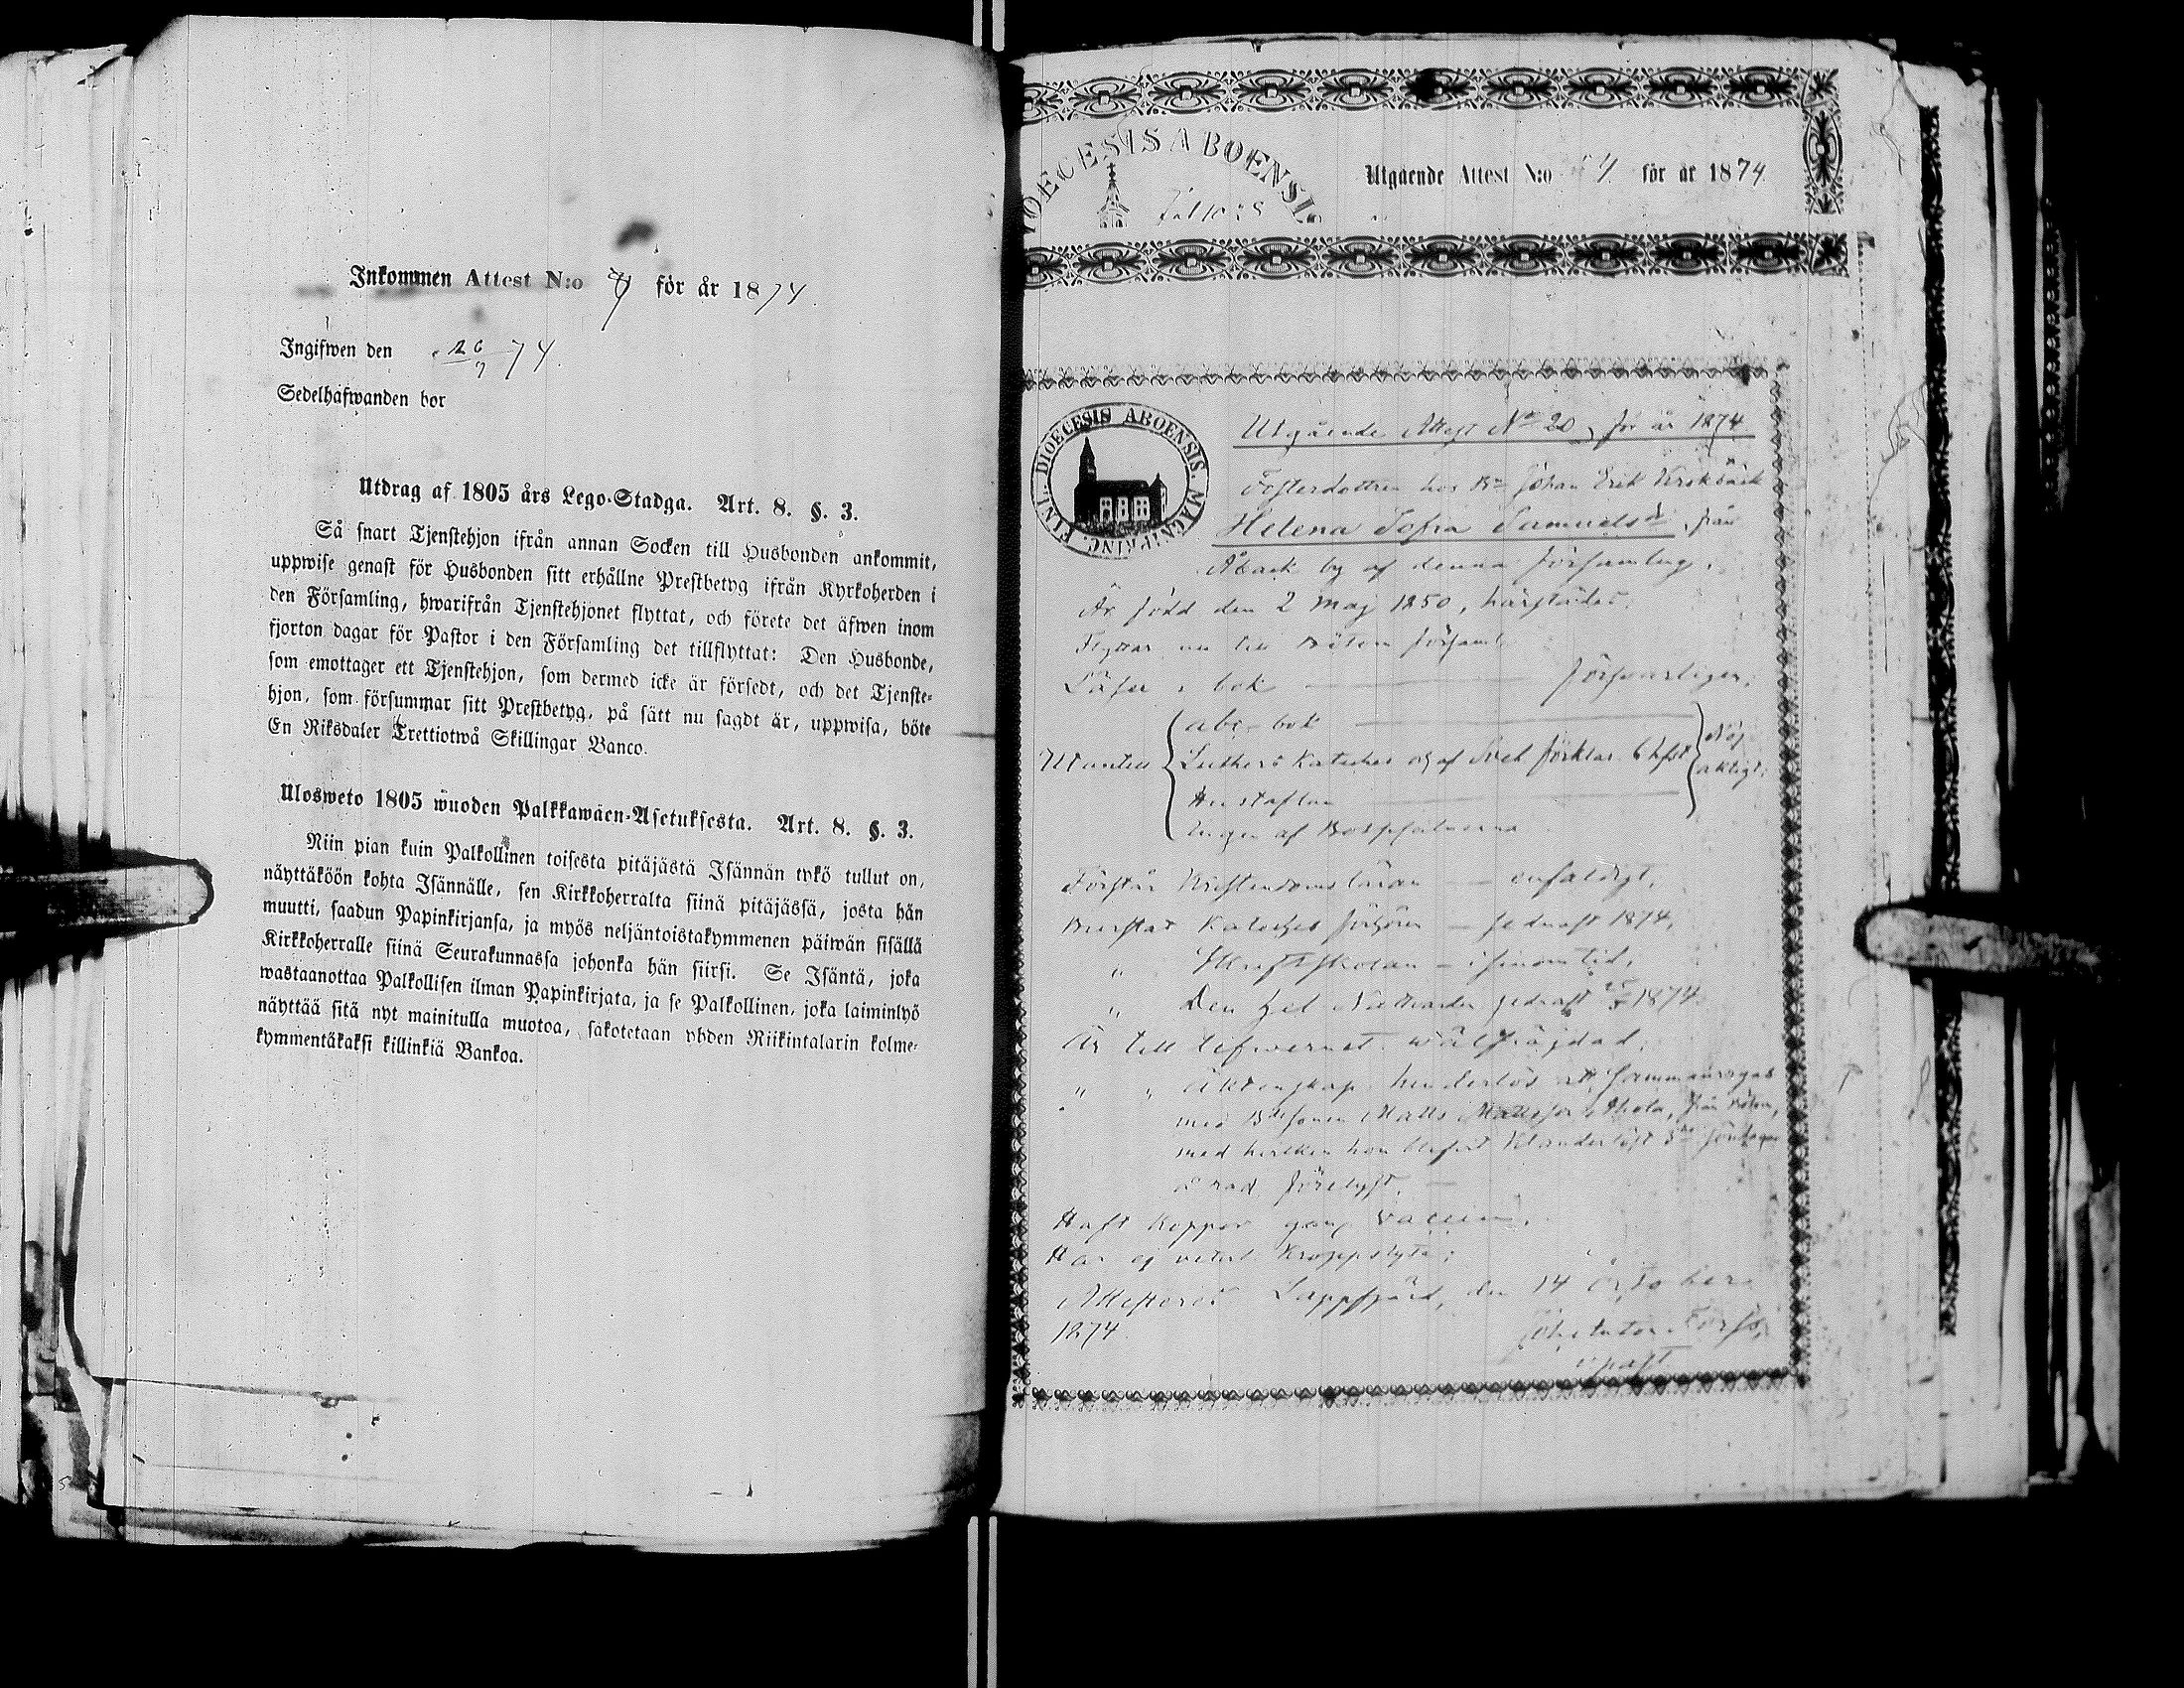 Inkommen Attest N:o 7 för år 1874.
Ingifwen den 26/7 74.
Sedelhafwanden bor
Utdrag af 1805 års Lego-Stadga. Art. 8. §. 3.
Så snart Tjenstehjon ifrån annan Socken till Husbonden ankommit,
uppwise genast för Husbonden sitt erhållne Prestbetyg ifrån Kyrkoherden i
den Församling, hwarifrån Tjenstehjonet flyttat, och förete det äfwen inom
fjorton dagar för Pastor i den Församling det tillflyttat: Den Husbonde,
som emottager ett Tjenstehjon, som dermed icke är försedt, och det Tjenste-
hjon, som försummar sitt Prestbetyg, på sätt nu sagdt är, uppwisa, böte
En Riksdaler Trettiotwå Skillingar Banco.
Ulosweto 1805 wuoden Palkkawäen-Asetuksesta. Art. 8. §. 3.
Niin pian kuin Palkollinen toisesta pitäjästä Isännän tykö tullut on,
näyttäköön kohta Isännälle, sen Kirkkoherralta siinä pitäjässä, josta hän
muutti, saadun Papinkirjansa, ja myös neljäntoistakymmenen päiwän sisällä
Kirkkoherralle siinä Seurakunnassa johonka hän siirsi. Se Isäntä, joka
wastaanottaa Palkollisen ilman Papinkirjata, ja se Palkollinen, joka laiminlyö
näyttää sitä nyt mainitulla muotoa, sakotetaan yhden Riikintalarin kolme-
kymmentäkaksi killinkiä Bankoa.
DIOECESIS ABOENSIS
Utgående Attest N:o för år 1874
DIOECESIS ABOENSIS. MAGNI PRINC. FINL.
Utgående Attest No 20, för år 1874
Fosterdottren hos Bn Johan Erik Krokbäck
Helena Sofia Samuelsdr, från
Åback by af denna församling.
Är född den 2 Maj 1850, härstädes.
Flyttar nu till Bötom församl.
Läser i bok försvarligen.
Utantill
abc-bok
Luthers Kateches och af Sveb. förklar. Chst
Hustaflan
Ingen af Botpsalmerna
Nöj
aktigt.
Förstår Kristendomsläran enfaldigt.
Bevistat Katechesförhören sednast 1874,
" Skriftskolan i sinom tid,
" Den hel. Nattvarden sednast 1874
Är till lefvernet wälfräjdad,
" " Äktenskap hinderlös att sammanvigas
med Bdesonen Matts Mattsson från Bötom,
med hvilken hon blifvit söndagar
å rad förelyst.
Haft koppor gen. vaccin.
Har ej vetat kroppslyte;
Attesterar Lappfjärd, den 14 October
1874.